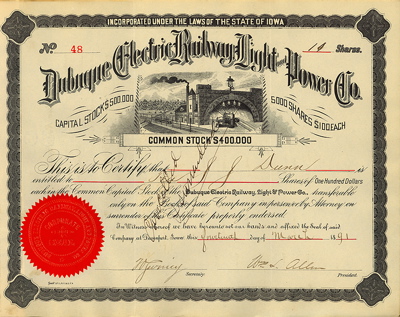 INCORPORATED UNDER THE LAWS OF THE STATE OF IOWA
No 48
10 Shares.
Dubuque Electric Railway, Light and Power Co.
CAPITAL STOCK $500,000
5,000 SHARES $100 EACH
COMMON STOCK $400,000
This is to Certify that J J Dunn is
entitled to Shares of One Hundred Dollars
each in the Common Capital Stock of the Dubuque Electric Railway, Light & Power Co., transferable
only on the Books of said Company in person or by Attorney on
surrender of this Certificate properly endorsed.
In Witness Whereof we have hereunto set our hands and affixed the Seal of said
Company at Dubuque, Iowa this fourteenth day of March 1891
Secretary.
Wm L. Allen
President.